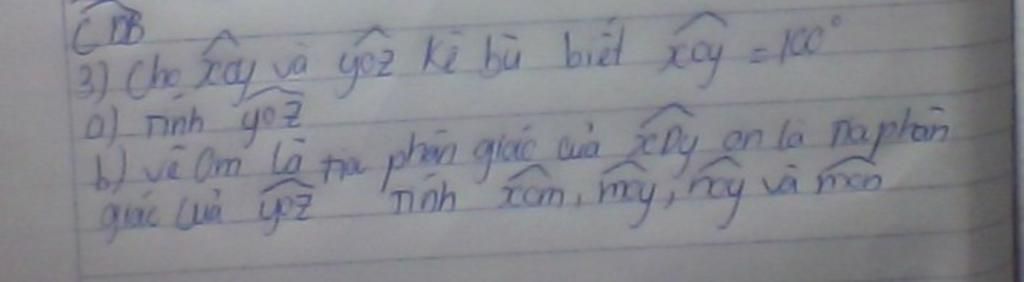 CDB
3) Cho xoy và yoz kè bù biết xoy = 100°
a) Tính yoz
b) vẽ Om là tia phân giác của xOy on là tia phân
giác của yoz Tính xom, moy, noy và mon